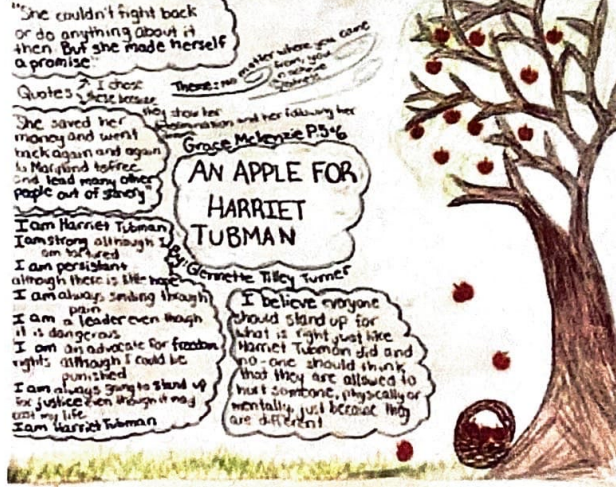 "She couldn't fight back
or do anything about it
then. But she made herself
a promise."
Quotes I chose
these because
they show her
determination and her following her
Theme: no matter where you came
from, you
can achieve
"She saved her
money and went
back again and again
to Maryland to free
and lead many other
people out of slavery"
Grace McKenzie P.5+6
AN APPLE FOR
HARRIET
TUBMAN
By: Glennette Tilley Turner
I am Harriet Tubman
I am strong although I
am tortured
I am persistant
although there is little hope
I am always smiling through
pain
I am a leader even though
it is dangerous
I am an advocate for freedom
rights although I could be
punished
I am always going to stand up
for justice even though it may
cost my life
I am Harriet Tubman
I believe everyone
should stand up for
what is right just like
Harriet Tubman did and
no-one should think
that they are allowed to
hurt someone, physically or
mentally, just because they
are different